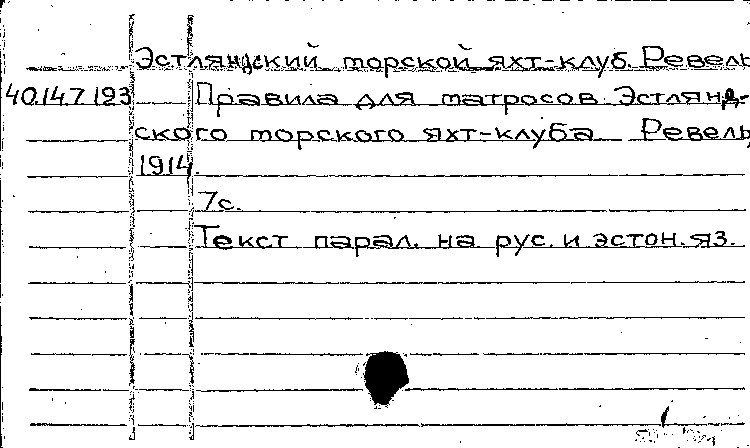 Эстляндский морской яхт-клуб. Ревель
40.14.7.123 Правила для матросов Эстлянд-
ского морского яхт-клуба Ревель
1914.
7с.
Текст парал. на рус. и эстон. яз.